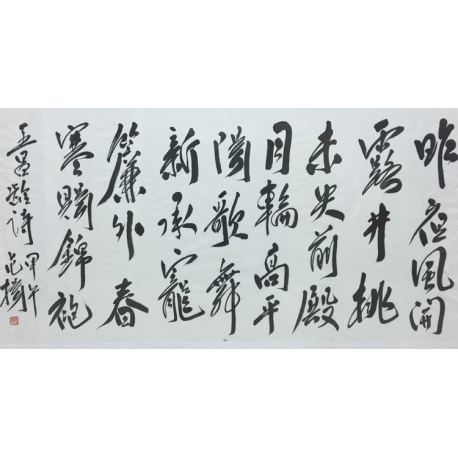 昨夜風開
露井桃
未央前殿
月輪高平
陽歌舞
新承寵
簾外春
寒賜錦袍
王昌齡詩
甲午